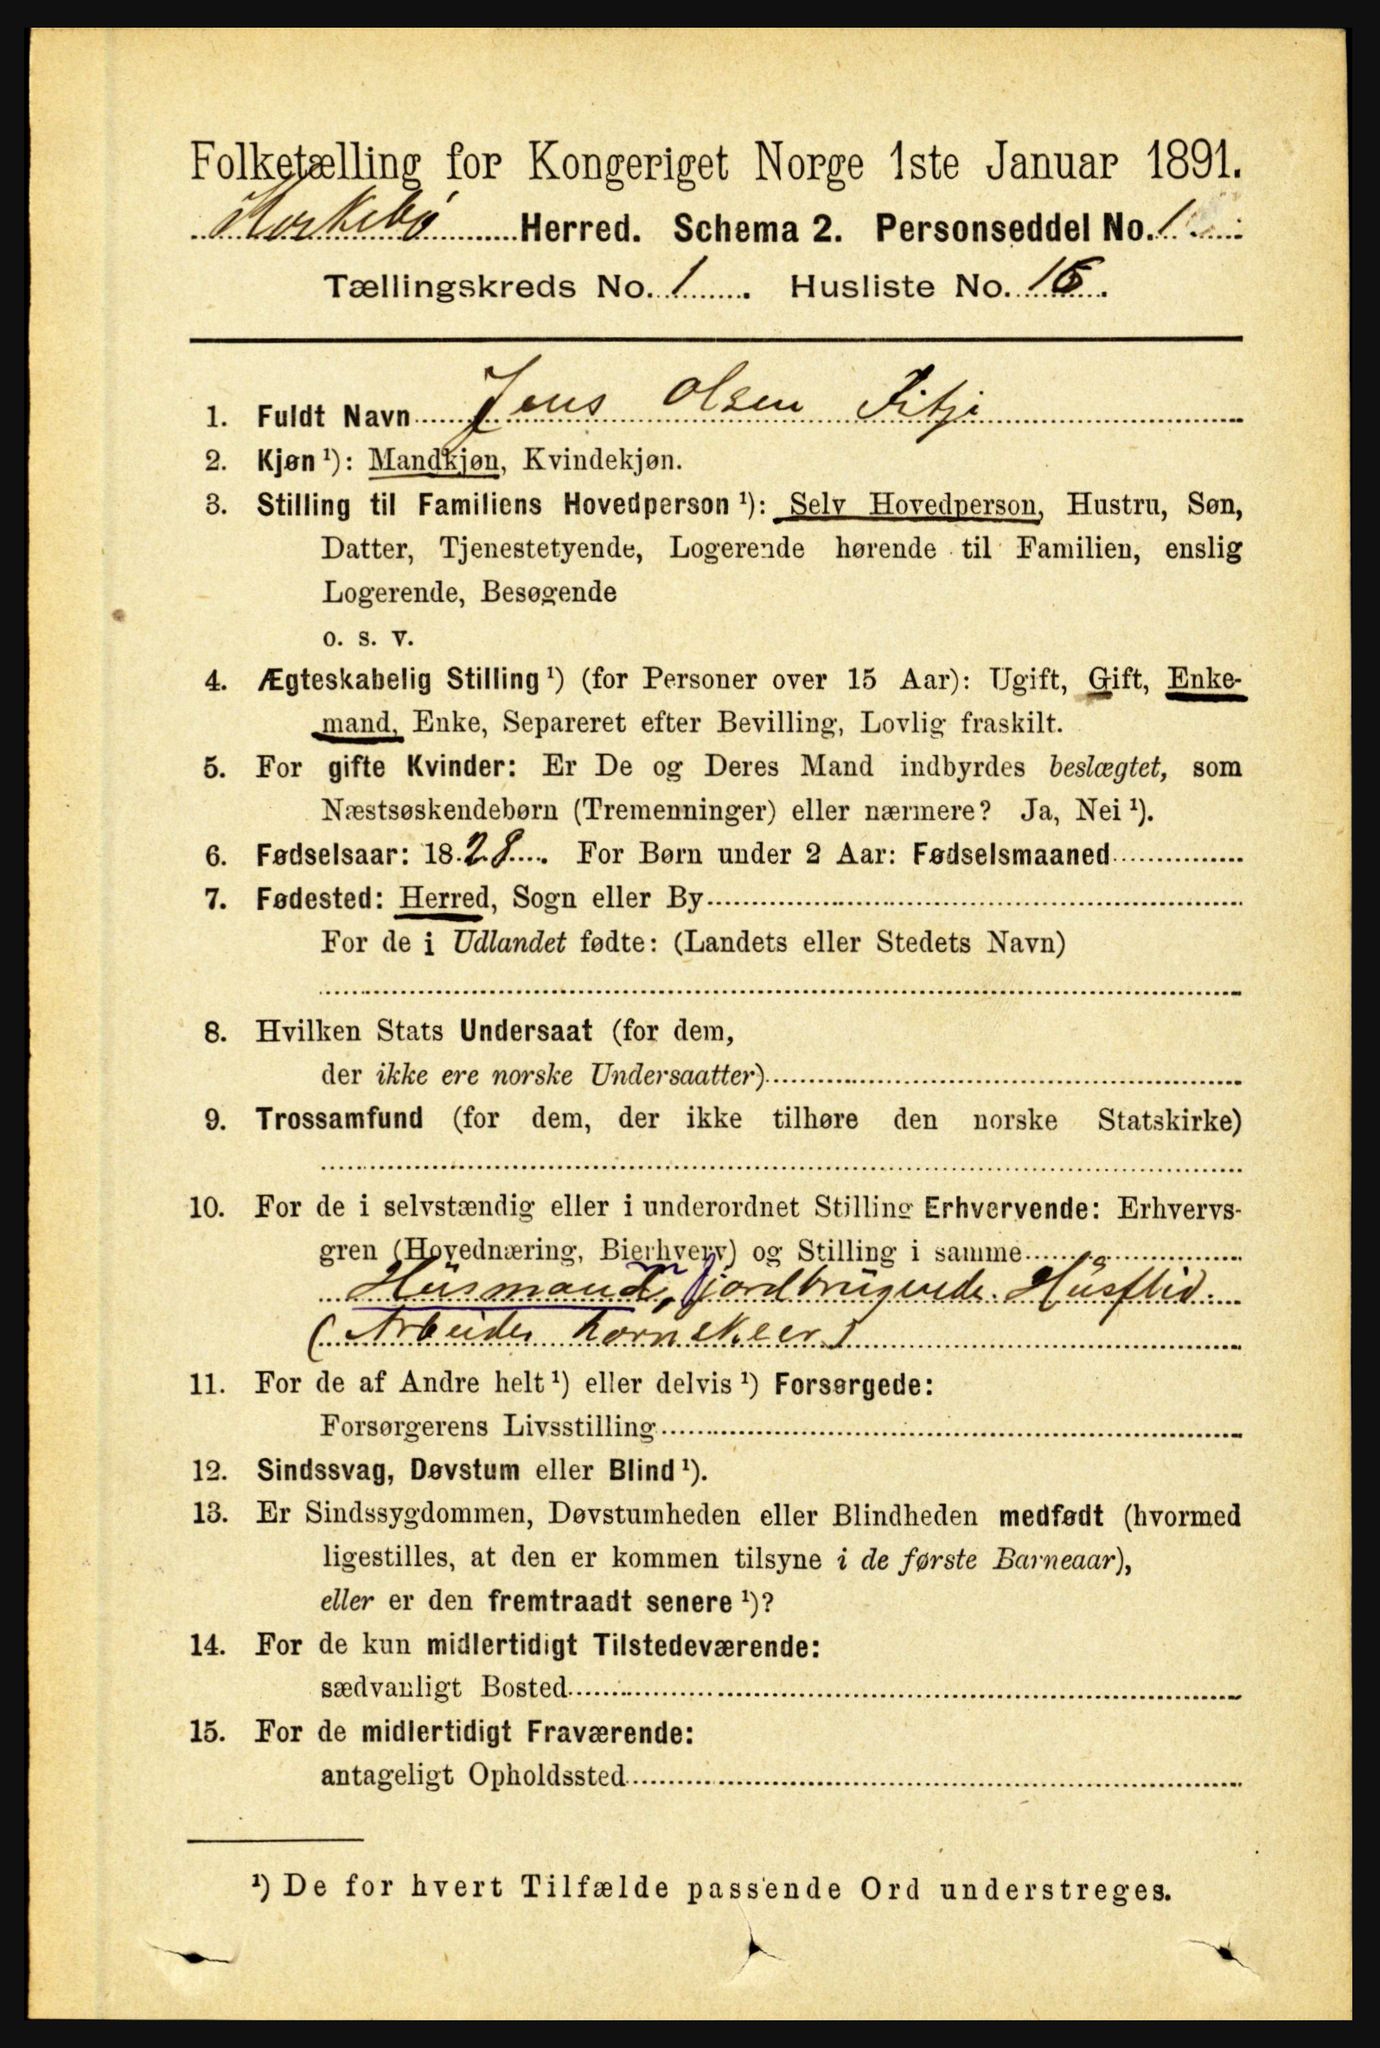 Folketælling for Kongeriget Norge 1ste Januar 1891.
Kyrkebø Herred. Schema 2. Personseddel No. 1
Tællingskreds No. 1. Husliste No. 16.
1. Fuldt Navn Jens Olsen Fitje
2. Kjøn ¹): Mandkjøn, Kvindekjøn.
3. Stilling til Familiens Hovedperson ¹): Selv Hovedperson, Hustru, Søn,
Datter, Tjenestetyende, Logerende hørende til Familien, enslig
Logerende, Besøgende
o. s. v.
4. Ægteskabelig Stilling ¹) (for Personer over 15 Aar): Ugift, Gift, Enke-
mand, Enke, Separeret efter Bevilling, Lovlig fraskilt.
5. For gifte Kvinder: Er De og Deres Mand indbyrdes beslægtet, som
Næstsøskendebørn (Tremenninger) eller nærmere? Ja, Nei ¹).
6. Fødselsaar: 1828. For Børn under 2 Aar: Fødselsmaaned
7. Fødested: Herred, Sogn eller By
For de i Udlandet fødte: (Landets eller Stedets Navn)
8. Hvilken Stats Undersaat (for dem,
der ikke ere norske Undersaatter)
9. Trossamfund (for dem, der ikke tilhøre den norske Statskirke)
10. For de i selvstændig eller i underordnet Stilling Erhvervende: Erhvervs-
gren (Hovednæring, Bierhverv) og Stilling i samme
Husmand, jordbrugende. Husflid.
(Arbeider Kornskeer)
11. For de af Andre helt ¹) eller delvis ¹) Forsørgede:
Forsørgerens Livsstilling
12. Sindssvag, Døvstum eller Blind ¹).
13. Er Sindssygdommen, Døvstumheden eller Blindheden medfødt (hvormed
ligestilles, at den er kommen tilsyne i de første Barneaar),
eller er den fremtraadt senere ¹)?
14. For de kun midlertidigt Tilstedeværende:
sædvanligt Bosted
15. For de midlertidigt Fraværende:
antageligt Opholdssted
¹) De for hvert Tilfælde passende Ord understreges.